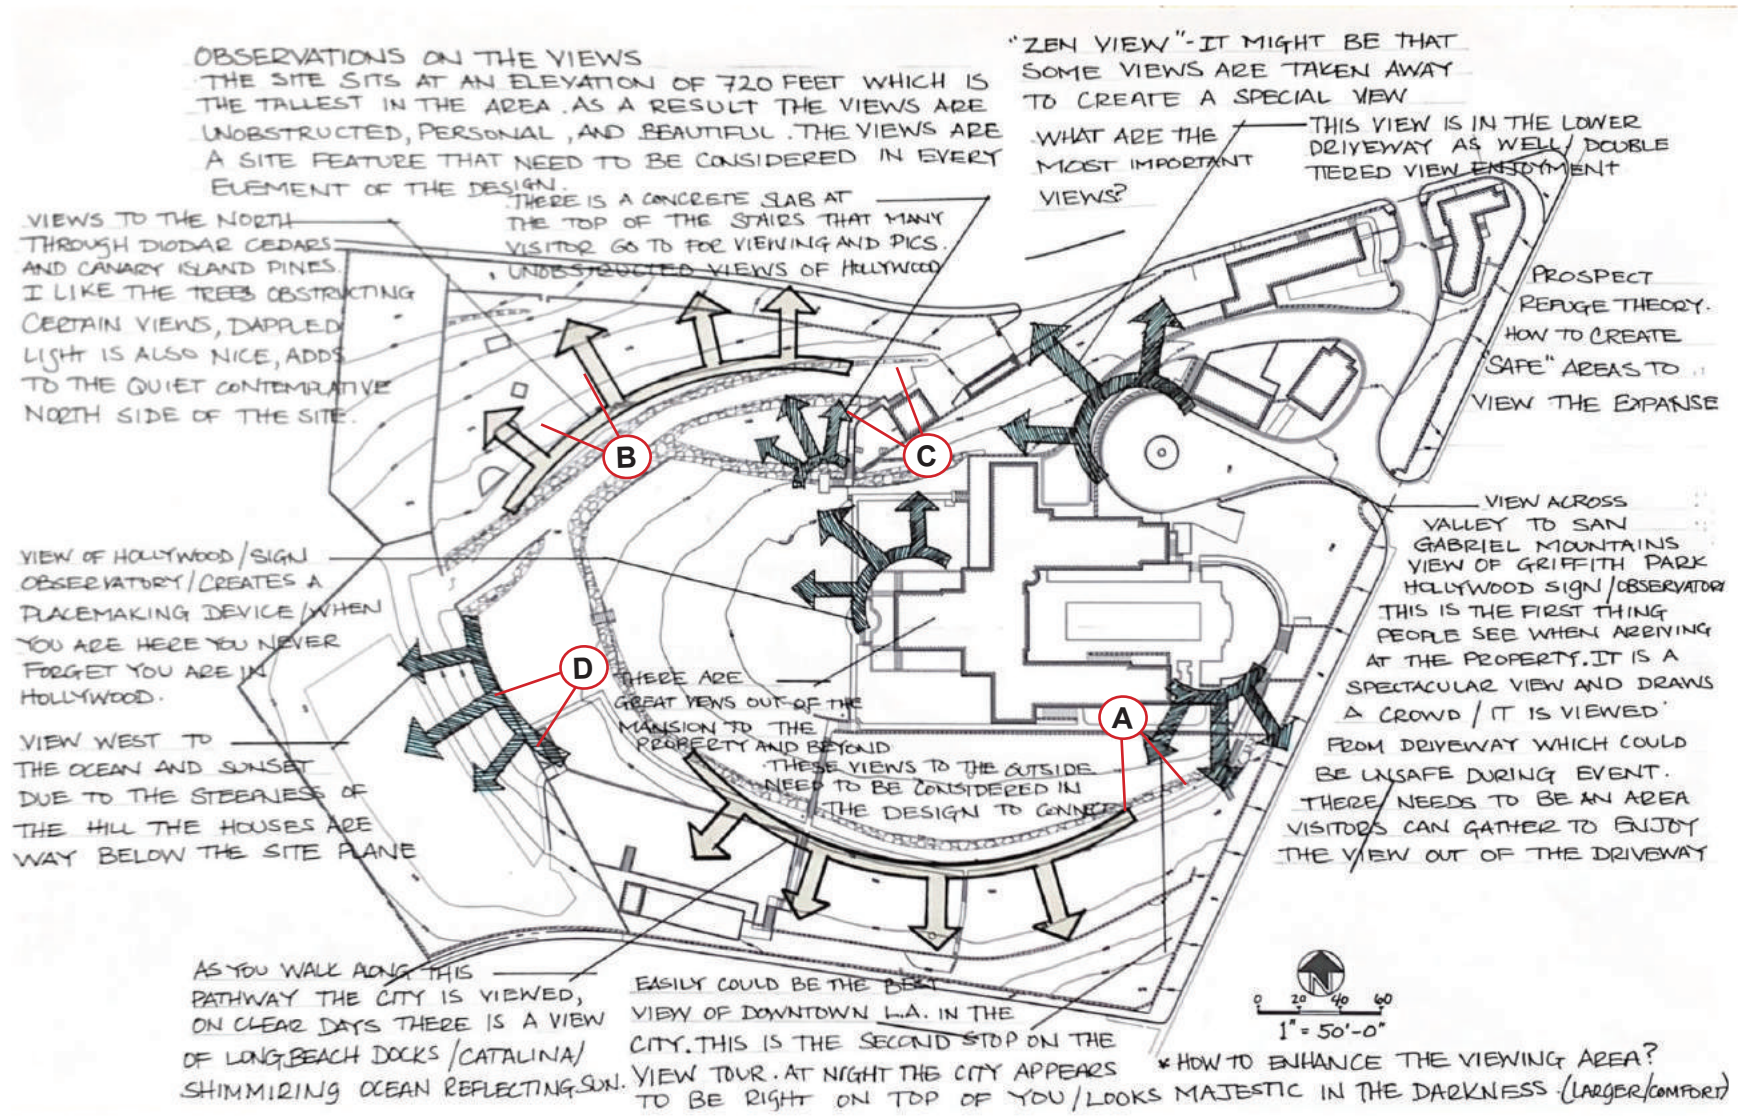 OBSERVATIONS ON THE VIEWS
THE SITE SITS AT AN ELEVATION OF 720 FEET WHICH IS
THE TALLEST IN THE AREA. AS A RESULT THE VIEWS ARE
UNOBSTRUCTED, PERSONAL, AND BEAUTIFUL. THE VIEWS ARE
A SITE FEATURE THAT NEED TO BE CONSIDERED IN EVERY
ELEMENT OF THE DESIGN.
"ZEN VIEW" - IT MIGHT BE THAT
SOME VIEWS ARE TAKEN AWAY
TO CREATE A SPECIAL VIEW
WHAT ARE THE
MOST IMPORTANT
VIEWS?
THIS VIEW IS IN THE LOWER
DRIVEWAY AS WELL, DOUBLE
TIERED VIEW ENJOYMENT
THERE IS A CONCRETE SLAB AT
THE TOP OF THE STAIRS THAT MANY
VISITOR GO TO FOR VIEWING AND PICS.
UNOBSTRUCTED VIEWS OF HOLLYWOOD
VIEWS TO THE NORTH
THROUGH DIODAR CEDARS
AND CANARY ISLAND PINES.
I LIKE THE TREES OBSTRUCTING
CERTAIN VIEWS, DAPPLED
LIGHT IS ALSO NICE, ADDS
TO THE QUIET CONTEMPLATIVE
NORTH SIDE OF THE SITE.
PROSPECT
REFUGE THEORY.
HOW TO CREATE
"SAFE" AREAS TO
VIEW THE EXPANSE
B
C
VIEW OF HOLLYWOOD/SIGN
OBSERVATORY/CREATES A
PLACEMAKING DEVICE/WHEN
YOU ARE HERE YOU NEVER
FORGET YOU ARE IN
HOLLYWOOD.
VIEW ACROSS
VALLEY TO SAN
GABRIEL MOUNTAINS
VIEW OF GRIFFITH PARK
HOLLYWOOD SIGN/OBSERVATORY
THIS IS THE FIRST THING
PEOPLE SEE WHEN ARRIVING
AT THE PROPERTY. IT IS A
SPECTACULAR VIEW AND DRAWS
A CROWD / IT IS VIEWED
FROM DRIVEWAY WHICH COULD
BE UNSAFE DURING EVENT.
THERE NEEDS TO BE AN AREA
VISITORS CAN GATHER TO ENJOY
THE VIEW OUT OF THE DRIVEWAY
D
A
THERE ARE
GREAT VIEWS OUT OF THE
MANSION TO THE
PROPERTY AND BEYOND
THESE VIEWS TO THE OUTSIDE
NEED TO BE CONSIDERED IN
THE DESIGN TO CONNECT
VIEW WEST TO
THE OCEAN AND SUNSET
DUE TO THE STEEPNESS OF
THE HILL THE HOUSES ARE
WAY BELOW THE SITE PLANE
AS YOU WALK ALONG THIS
PATHWAY THE CITY IS VIEWED,
ON CLEAR DAYS THERE IS A VIEW
OF LONGBEACH DOCKS /CATALINA/
SHIMMIRING OCEAN REFLECTING SUN.
EASILY COULD BE THE BEST
VIEW OF DOWNTOWN L.A. IN THE
CITY. THIS IS THE SECOND STOP ON THE
VIEW TOUR. AT NIGHT THE CITY APPEARS
TO BE RIGHT ON TOP OF YOU/LOOKS MAJESTIC IN THE DARKNESS.
N
0 20 40 60
1" = 50'-0"
* HOW TO ENHANCE THE VIEWING AREA?
(LARGER/COMFORT)